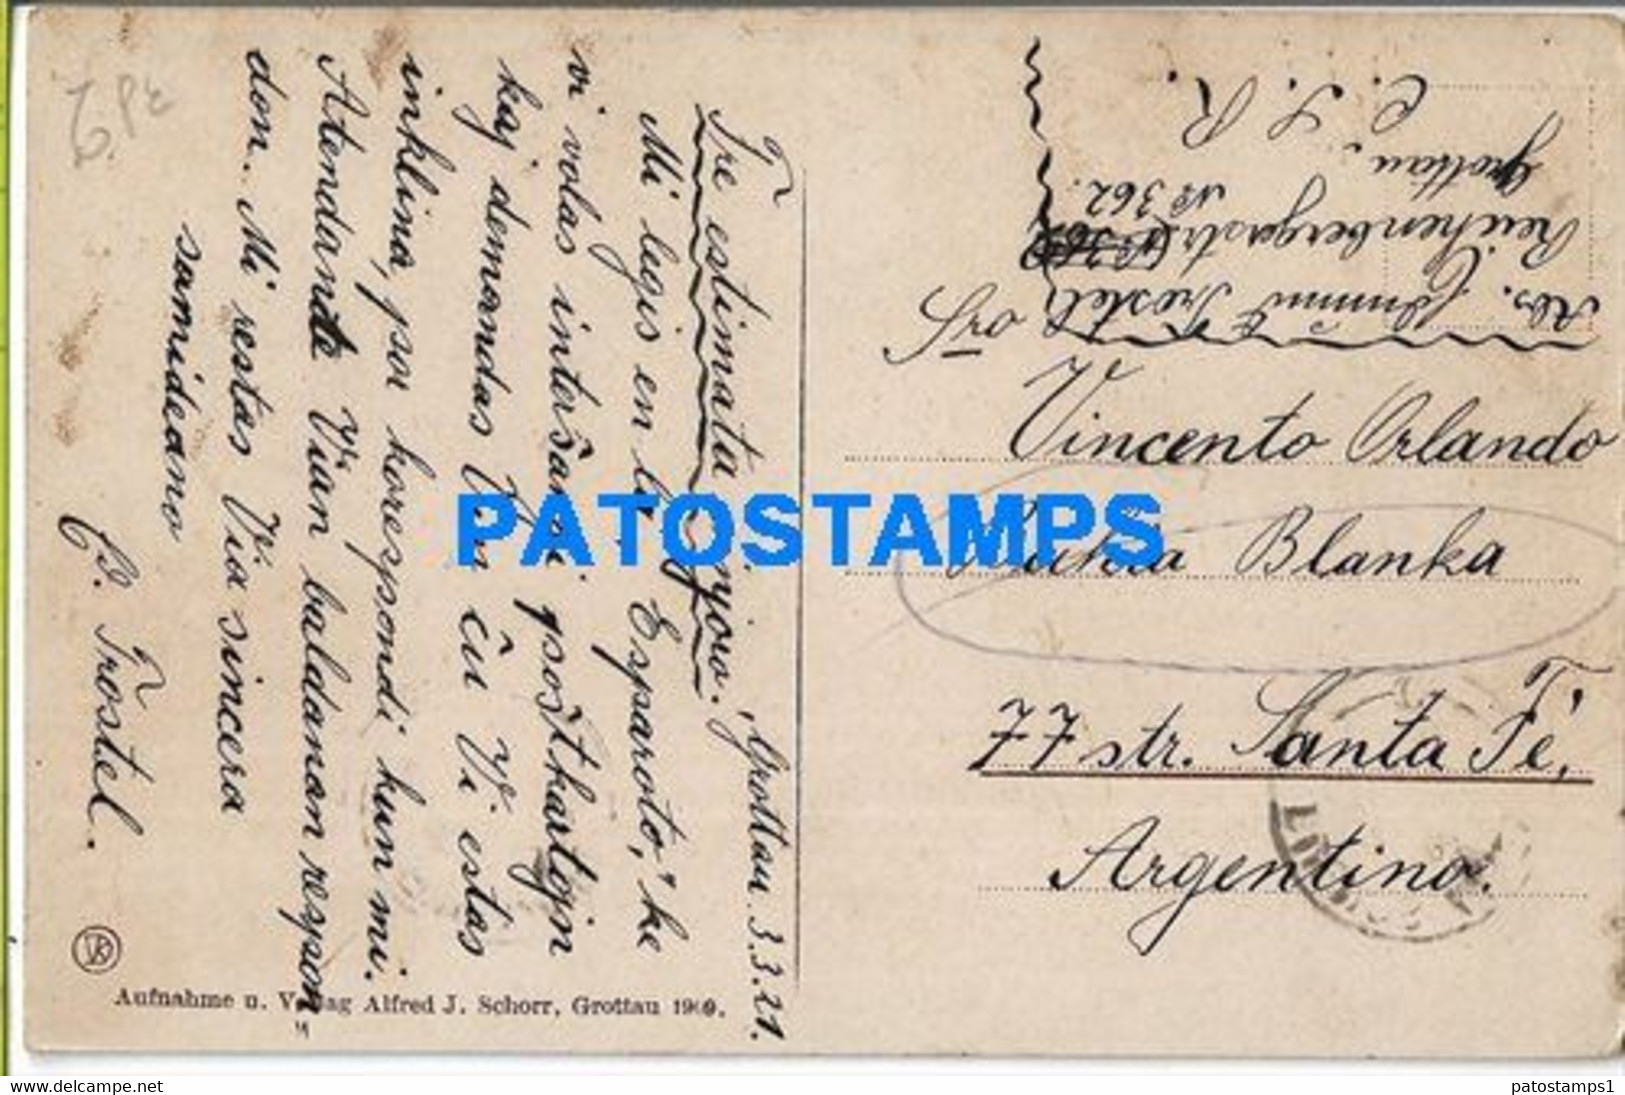 Grottau 3.3.21.
Tre estimata
Mi legis en la "Esparoto," ke
vi volas interŝanĝi poŝtkartojn
kaj demandas Vin ĉu Vi estas
inklina, por korespondi kun mi.
Atendante Vian baldanan respon
don. Mi restas Via sincera
samideano
E. Tröstel.
Abs. Tröstel
Reichenbergerstr.
Nº 362.
Grottau,
C. S. R.
Sro
Vincento Orlando
Bahia Blanka
77 str. Santa Fé,
Argentino.
PATOSTAMPS
Aufnahme u. Verlag Alfred J. Schorr, Grottau 1909.
delcampe.net
patostamps1